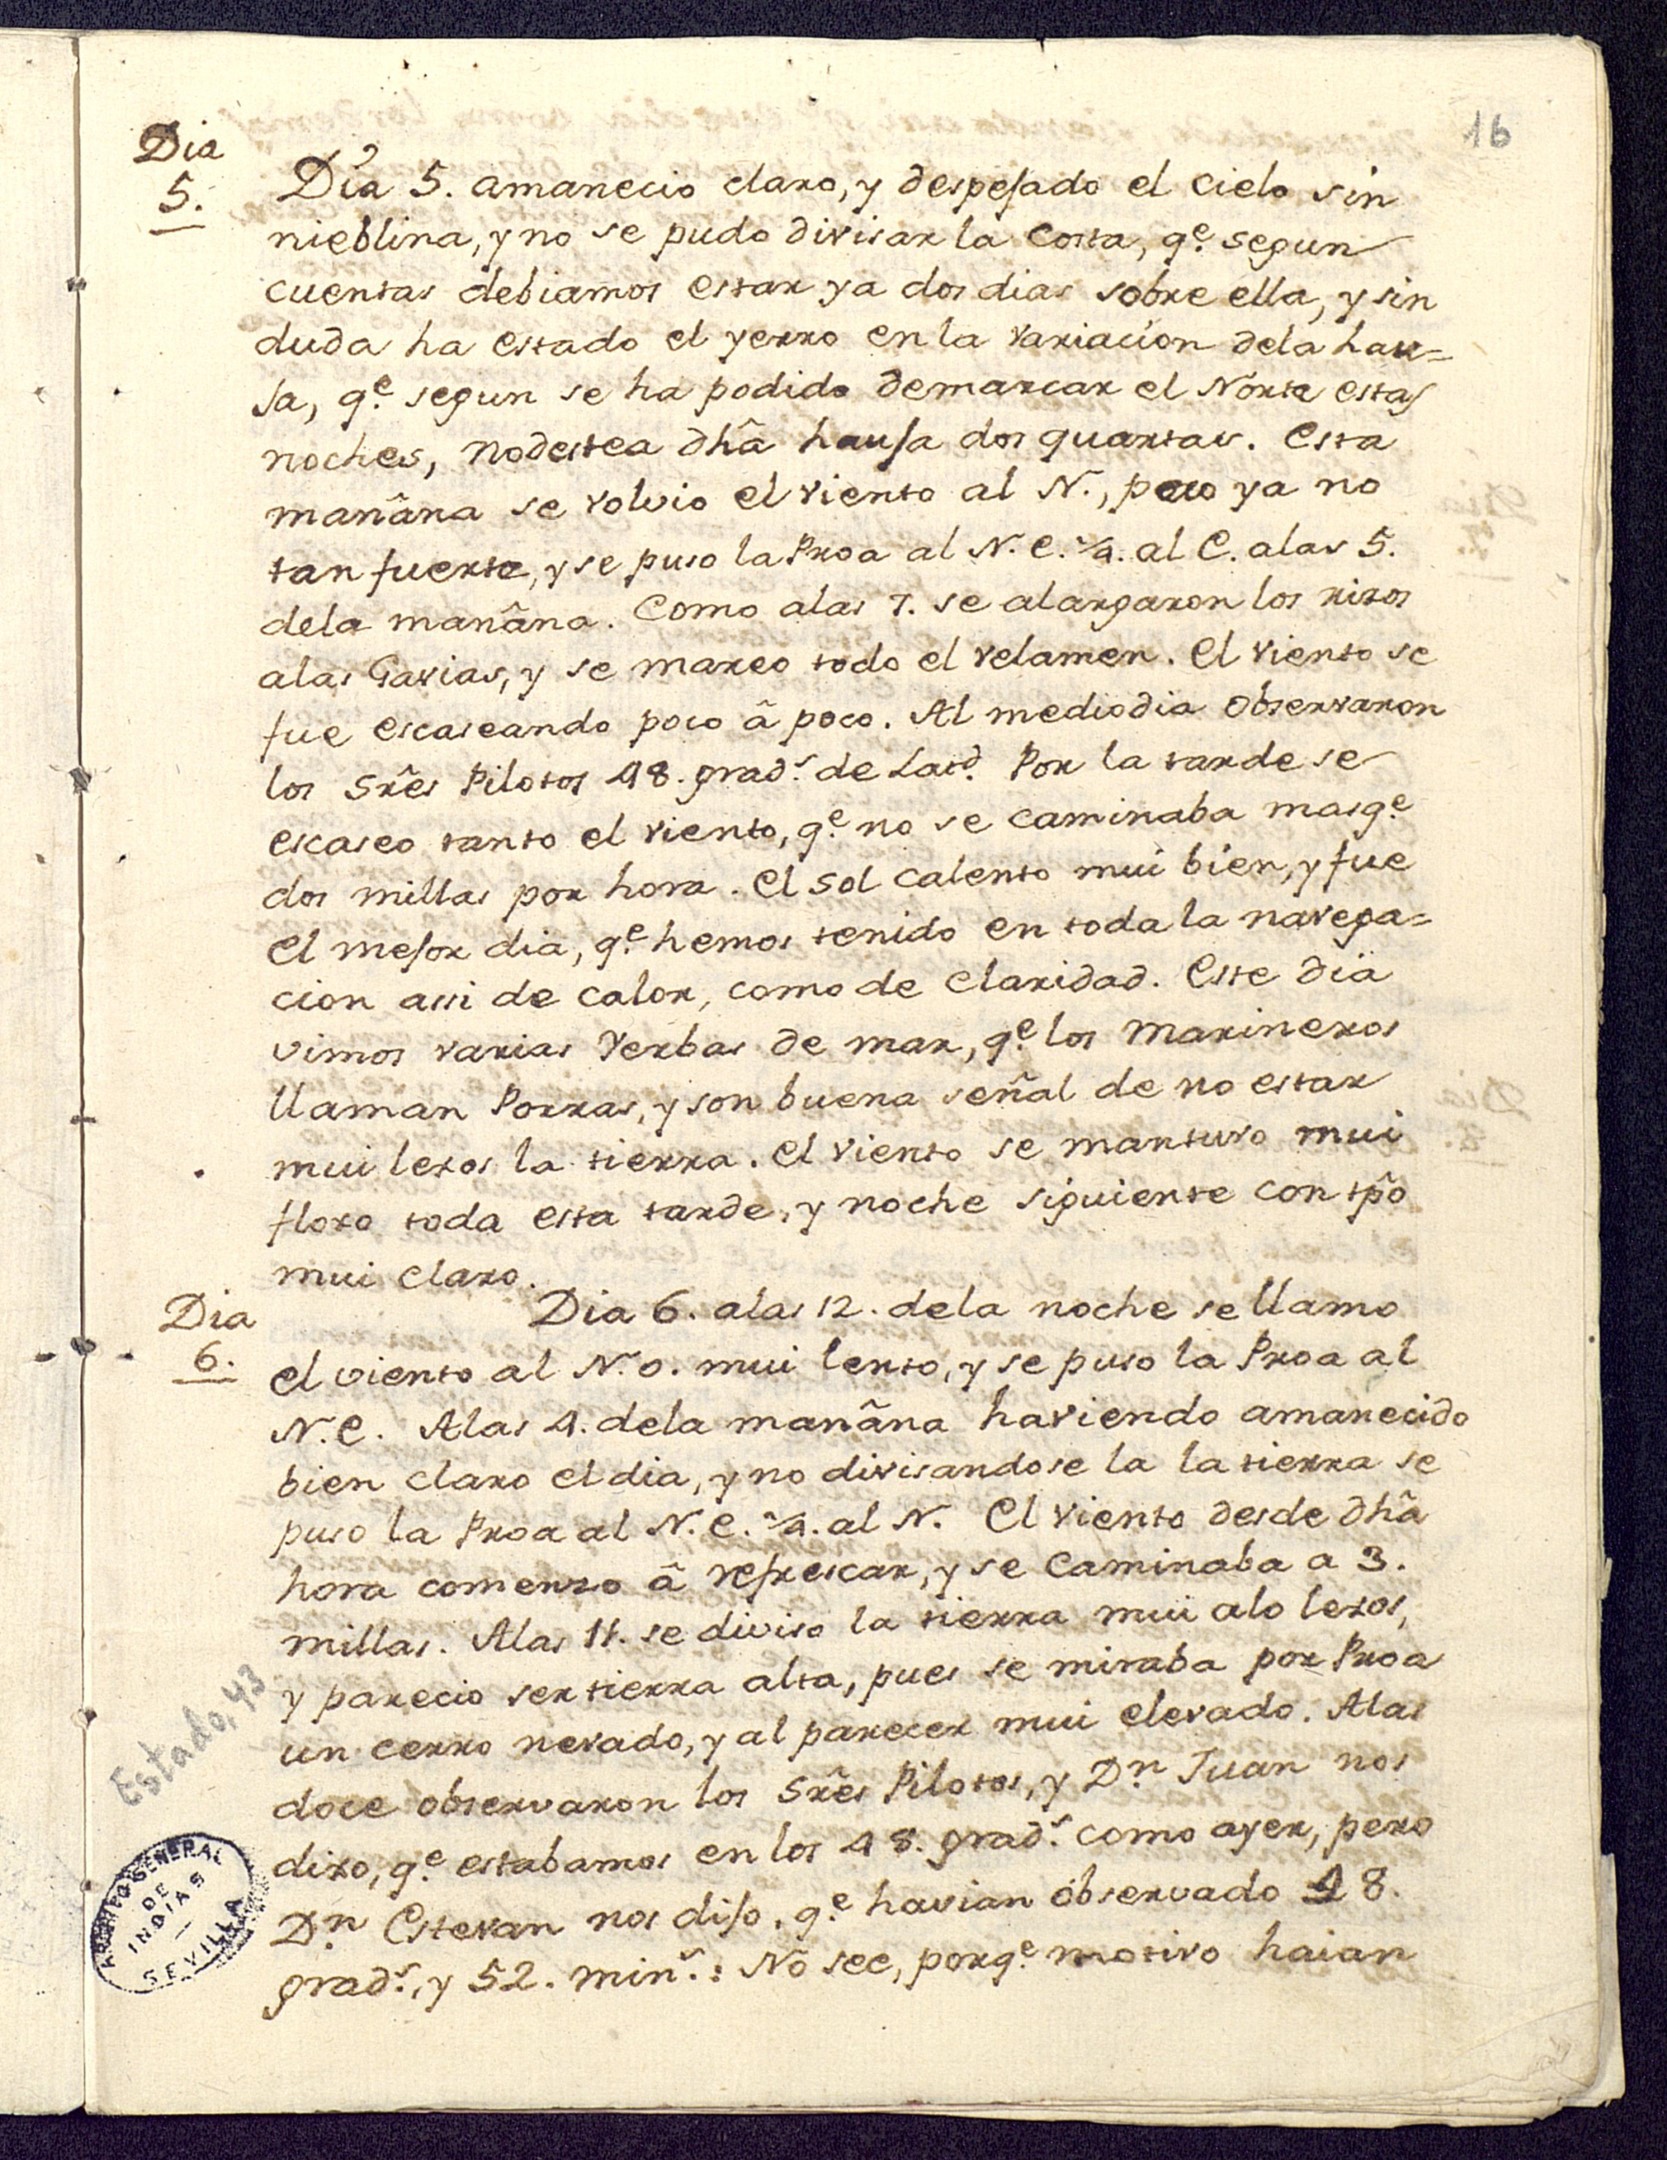 16
Dia
5.
Dia 5. amanecio claro, y despejado el cielo sin
nieblina, y no se pudo divisar la costa, qe. segun
cuentas debiamos estar ya dos dias sobre ella, y sin
duda ha estado el yerro en la variacion dela hau=
ja, qe. segun se ha podido demarcar el Norte estas
noches, nodestea dhâ hauja dos quartas. Esta
manâna se volvio el viento al N., pero ya no
tan fuerte, y se puso la Proa al N.E. ¼. al E. alas 5.
dela manâna. Como alas 7. se alargaron los rizos
alas Gavias, y se mareo todo el velamen. El viento se
fue escaseando poco â poco. Al mediodia observaron
los Srês Pilotos 48. grads. de Latd. Por la tarde se
escaseo tanto el viento, qe. no se caminaba mas qe.
dos millas por hora. El sol calento mui bien, y fue
el mejor dia, qe. hemos tenido en toda la navega=
cion assi de calor, como de claridad. Este dia
vimos varias Yerbas de mar, qe. los Marineros
llaman Porras, y son buena señal de no estar
mui lexos la tierra. El viento se mantuvo mui
floxo toda esta tarde, y noche siguiente con tpô
mui claro.
Dia
6.
Dia 6. alas 12. dela noche se llamo
el viento al N.O. mui lento, y se puso la Proa al
N.E. Alas 4. dela manâna haviendo amanecido
bien claro el dia, y no divisandose la la tierra se
puso la Proa al N.E. ¼. al N. El viento desde dhâ
hora comenzo â refrescar, y se caminaba a 3.
millas. Alas 11. se diviso la tierra mui alo lexos,
y parecio ser tierra alta, pues se miraba por Proa
un cerro nevado, y al parecer mui elevado. Alas
doce observaron los Srês Pilotos, y Dn. Juan nos
dixo, qe. estabamos en los 48. grads. como ayer, pero
Dn. Estevan nos dijo, qe. havian observado 48.
grads., y 52. mins.: No see, porqe. motivo haian
Estado, 43
ARCHIVO GENERAL
DE
INDIAS
SEVILLA